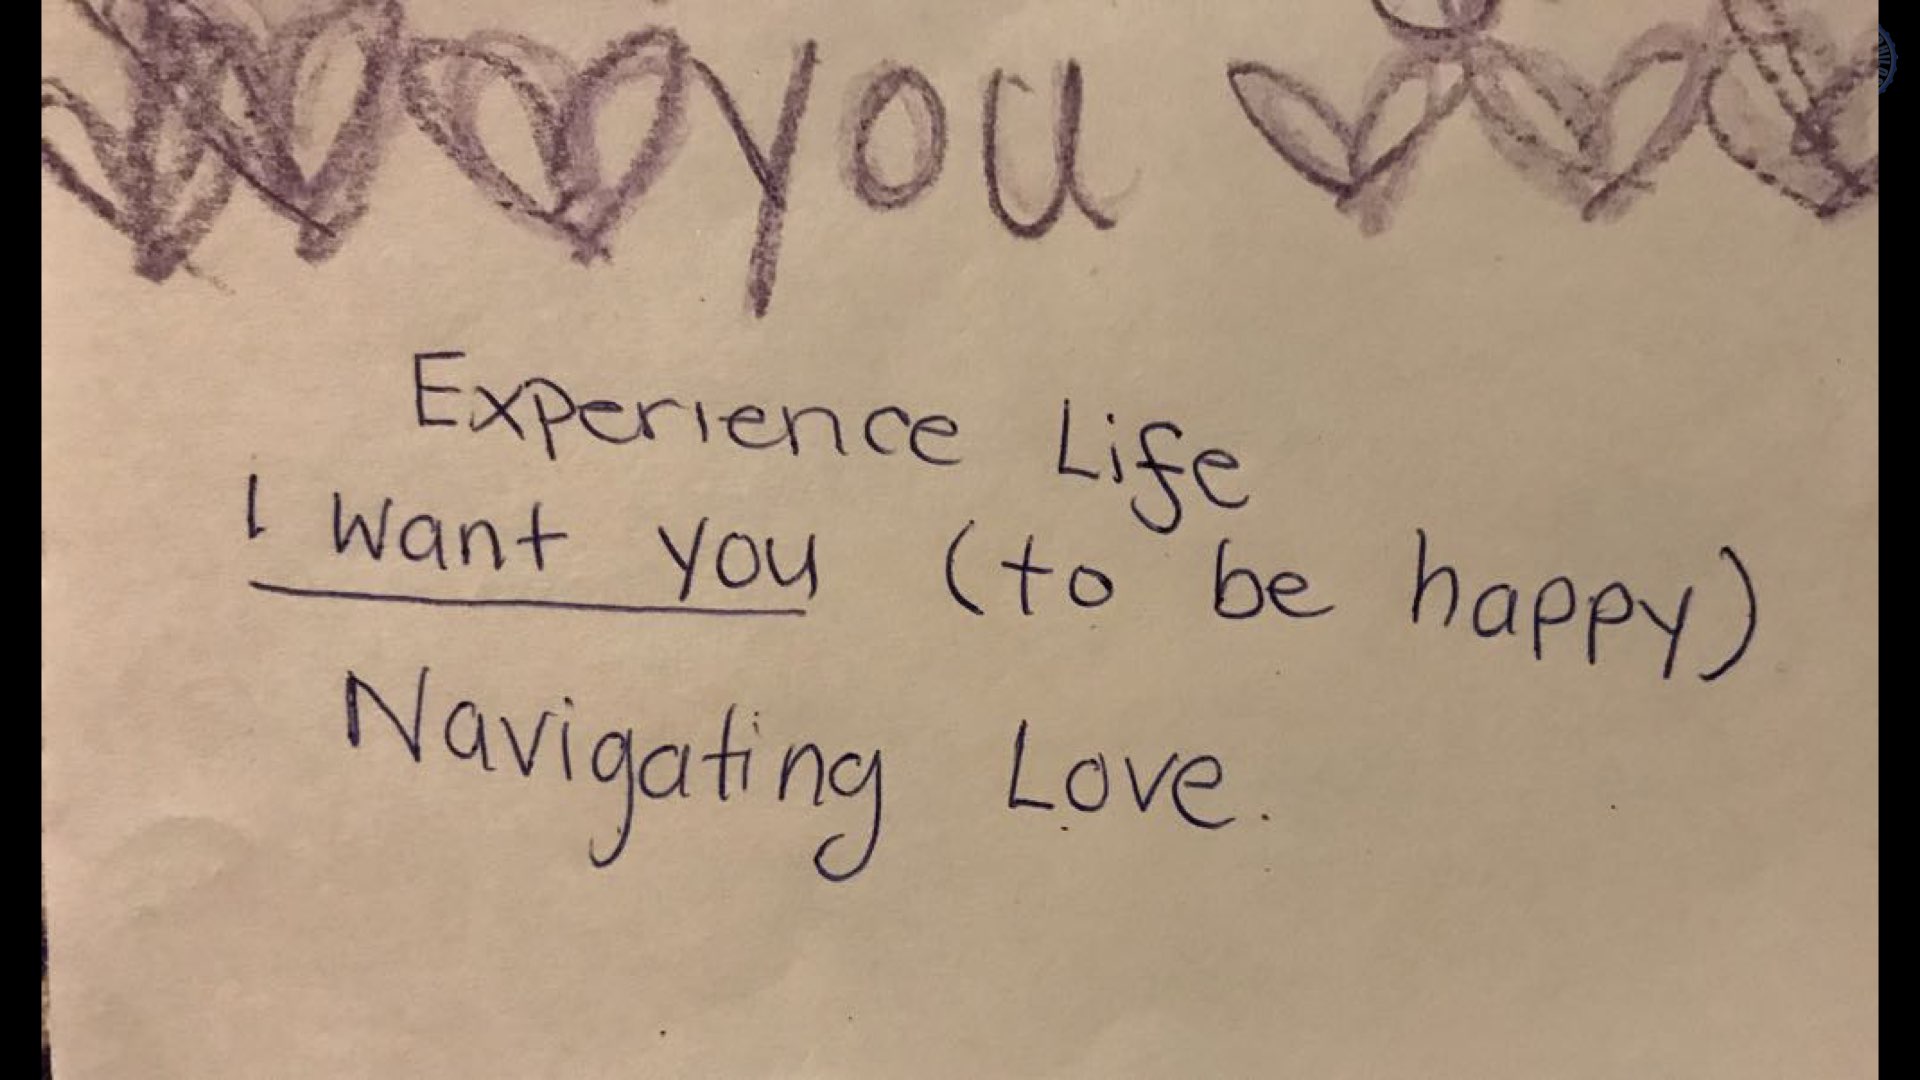 you
Experience Life
I want you (to be happy)
Navigating Love.